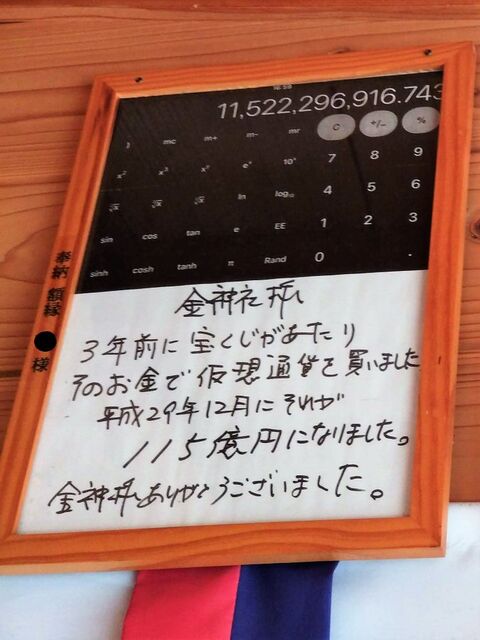 11,522,296,916.743
)
mc
m+
m-
mr
C
+/-
%
x²
x³
xʸ
eˣ
10ˣ
7
8
9
ln
log₁₀
4
5
6
sin
cos
tan
e
EE
1
2
3
sinh
cosh
tanh
π
Rand
0
.
奉納 額縁
様
金神社様
3年前に宝くじがあたり
そのお金で仮想通貨を買いました
平成29年12月にそれが
115億円になりました。
金神様ありがとうございました。